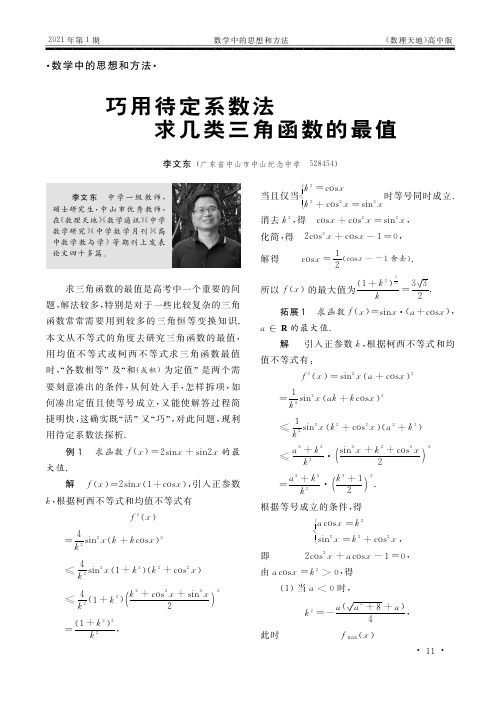 2021 年第 1 期 数学中的思想和方法 《数理天地》高中版
·数学中的思想和方法·
巧用待定系数法
求几类三角函数的最值
李文东 (广东省中山市中山纪念中学 528454)
李文东 中学一级教师,
硕士研究生,中山市优秀教师,
在《数理天地》《数学通讯》《中学
数学研究》《中学数学月刊》《高
中数学教与学》等期刊上发表
论文四十多篇.
求三角函数的最值是高考中一个重要的问
题,解法较多,特别是对于一些比较复杂的三角
函数常常需要用到较多的三角恒等变换知识.
本文从不等式的角度去研究三角函数的最值,
用均值不等式或柯西不等式求三角函数最值
时,“各数相等”及“和(或积)为定值”是两个需
要刻意凑出的条件,从何处入手,怎样拆项,如
何凑出定值且使等号成立,又能使解答过程简
捷明快,这确实既“活”又“巧”,对此问题,现利
用待定系数法探析.
例 1 求函数 f(x)=2sinx+sin2x 的最
大值.
解 f(x)=2sinx(1+cosx),引入正参数
k,根据柯西不等式和均值不等式有
f²(x)
=4/k² sin²x(k+kcosx)²
≤4/k² sin²x(1+k²)(k²+cos²x)
≤4/k² (1+k²)((k²+cos²x+sin²x)/2)²
=(1+k²)³/k²,
当且仅当{k²=cosx
k²+cos²x=sin²x 时等号同时成立.
消去 k²,得 cosx+cos²x=sin²x,
化简,得 2cos²x+cosx−1=0,
解得 cosx=1/2 (cosx=−1 舍去).
所以 f(x) 的最大值为 (1+k²)^(3/2)/k=3√3/2.
拓展 1 求函数 f(x)=sinx·(a+cosx),
a∈R 的最大值.
解 引入正参数 k,根据柯西不等式和均
值不等式有:
f²(x)=sin²x(a+cosx)²
=1/k² sin²x(ak+kcosx)²
≤1/k² sin²x(k²+cos²x)(a²+k²)
≤(a²+k²)/k²·((sin²x+k²+cos²x)/2)²
=(a²+k²)/k²·((k²+1)/2)².
根据等号成立的条件,得
{acosx=k²
sin²x=k²+cos²x,
即 2cos²x+acosx−1=0,
由 acosx=k²>0,得
(1) 当 a<0 时,
k²=−a(√(a²+8)+a)/4,
此时 fmax(x)
· 11 ·